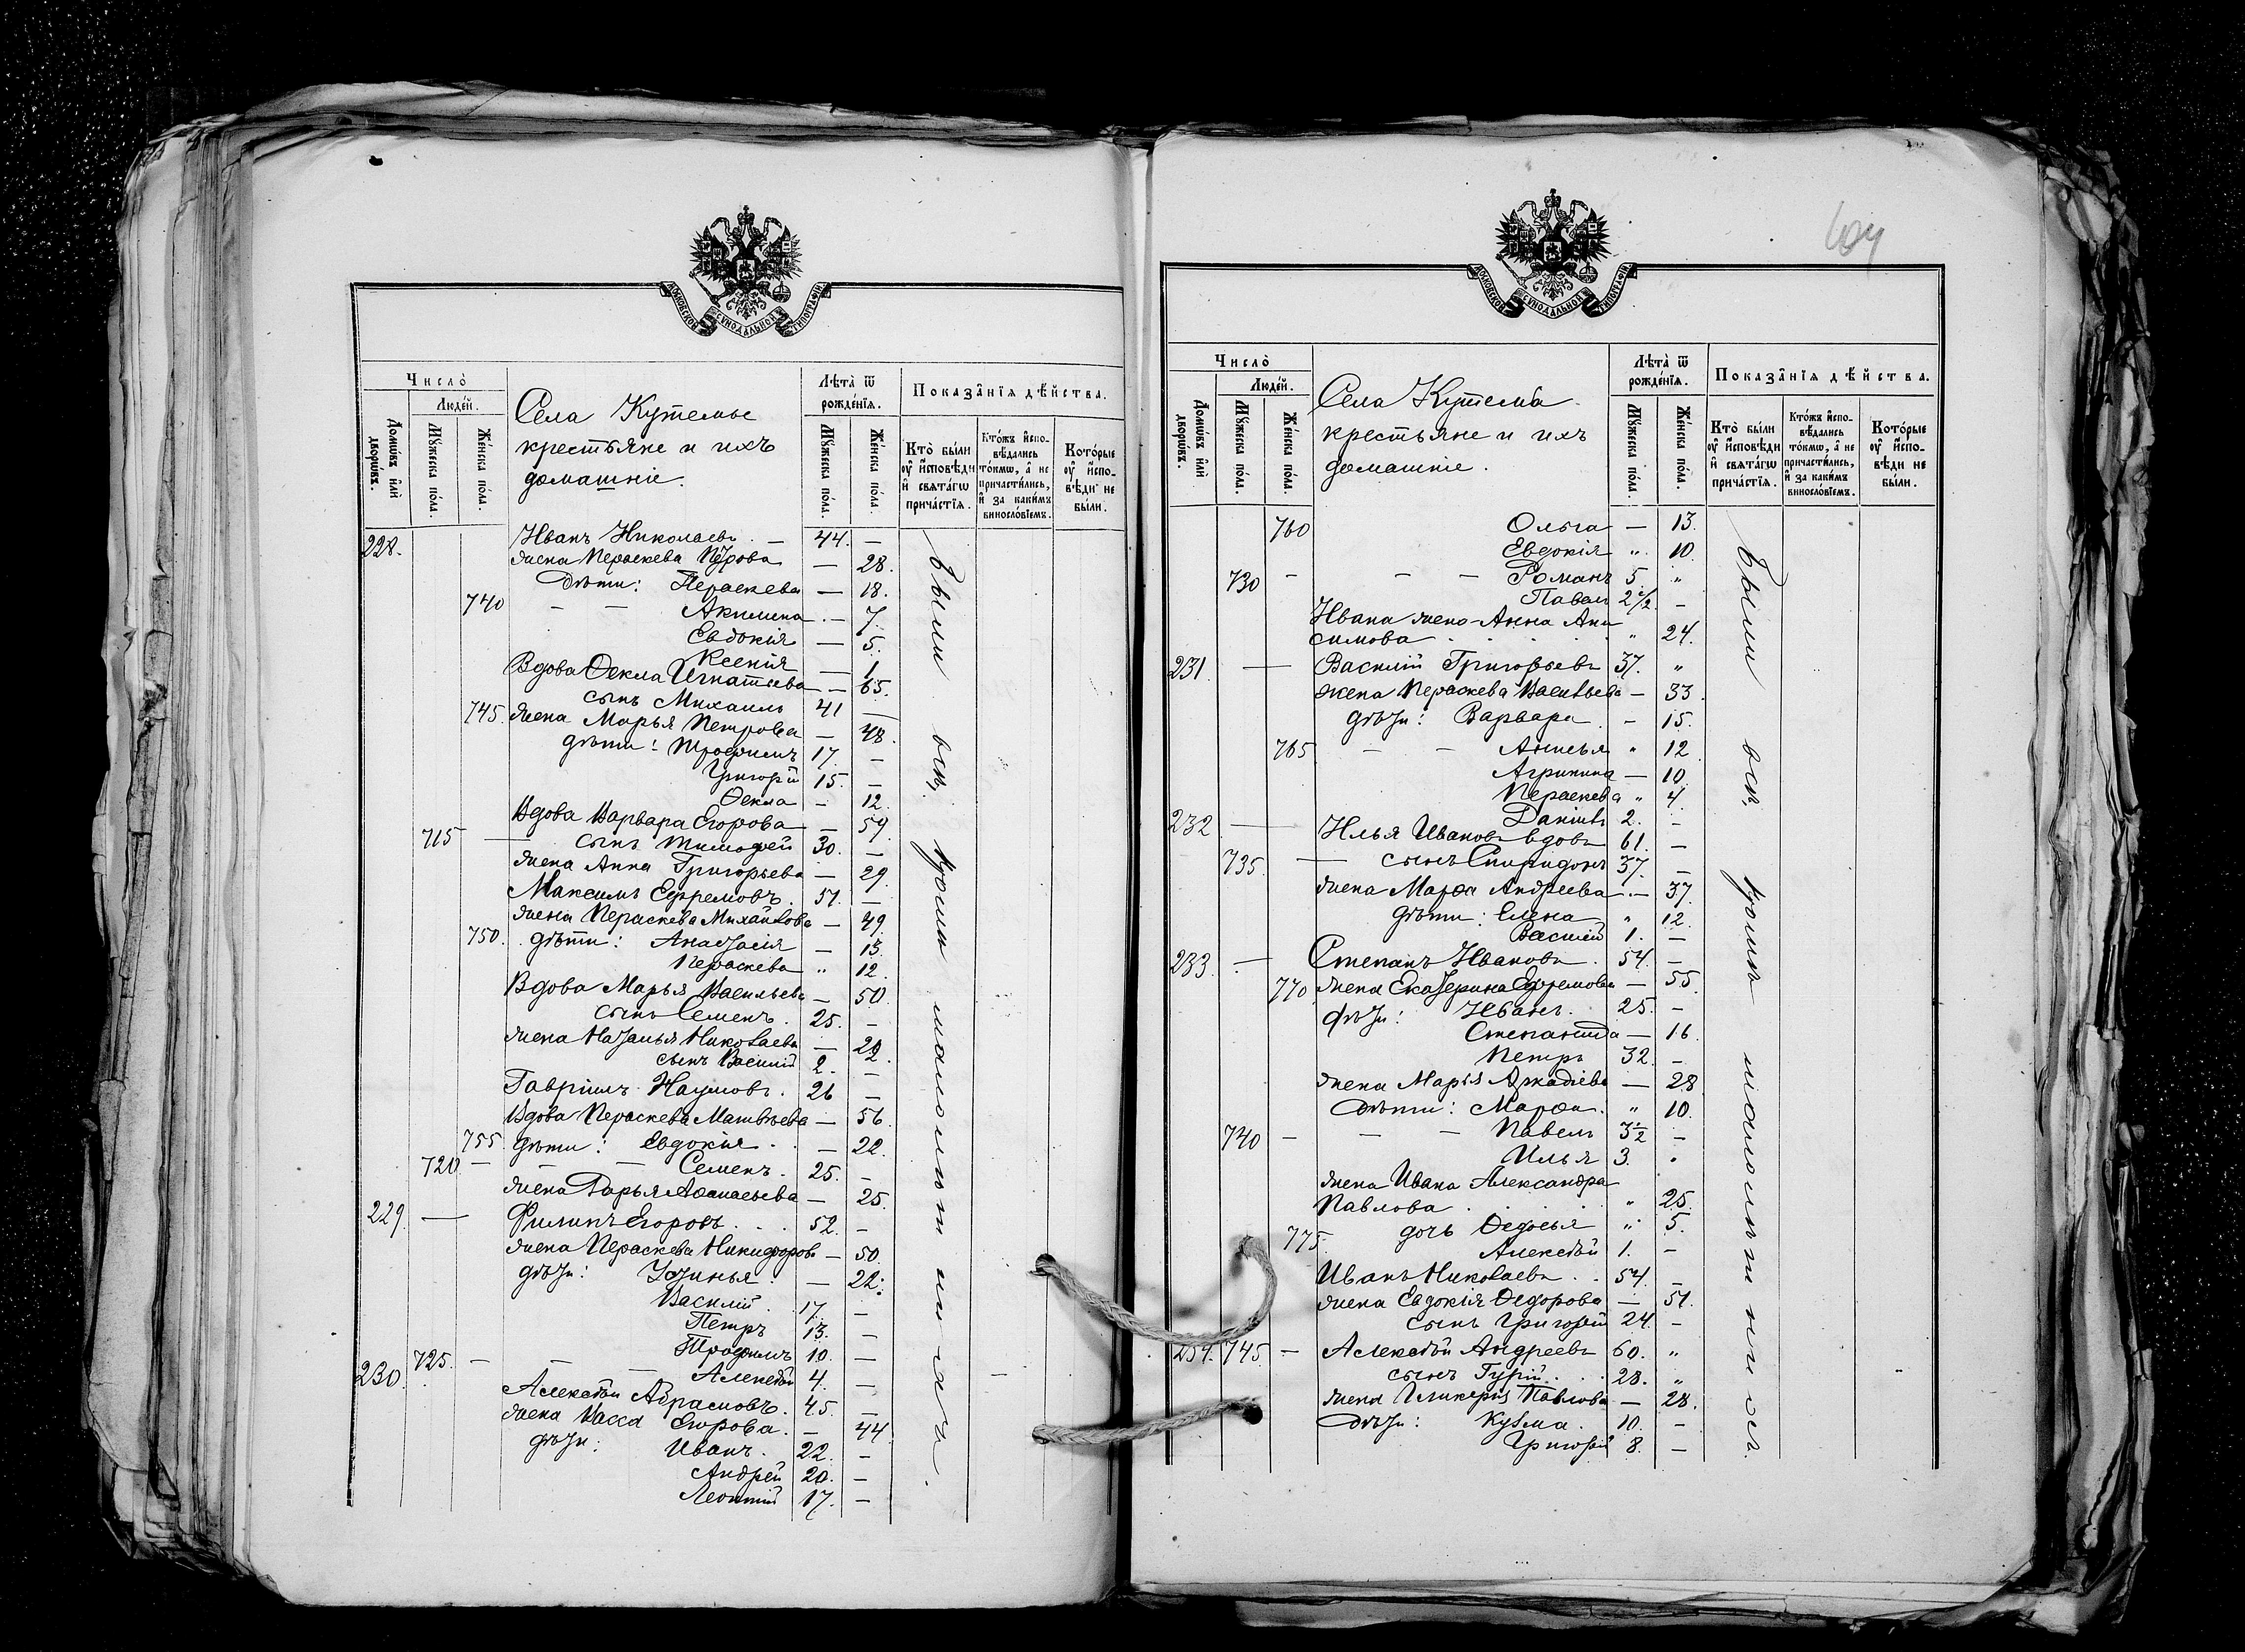 МОСКОВСКОЙ СѴНОДАЛЬНОЙ ТИПОГРАФІИ.
Число̀
Людей.
Домѡвъ и҆лѝ дворѡвъ.
Мꙋжеска пола.
Женска пола.
Села Кутемы
крестьяне и ихъ
домашніе.
Лѣта̀ ѿ рожденїѧ.
Мꙋжеска пола.
Женска пола.
Показанїѧ дѣйства.
Кто̀ были ᲂу҆ и҆сповѣди и҆ свѧтагѡ причастїѧ.
Ктожъ и҆сповѣдались токмѡ, а҆ не причастились, и҆ за какимъ винословїемъ.
Которые ᲂу҆ и҆сповѣди не были.
228. Иванъ Николаевъ. — 44. —
жена Пераскева Петрова — 28.
дѣти: Пераскева — 18.
740 — — Акилина — 7.
Евдокія — 5.
Ксенія — 1.
Вдова Ѳекла Игнатьева — 65.
сынъ Михаилъ 41 —
745. жена Марья Петрова — 48.
дѣти: Трофимъ 17. —
Григорій 15. —
Ѳекла — 12.
Вдова Варвара Егорова — 59.
715 — сынъ Тимофей 30. —
жена Анна Григорьева — 29.
Максимъ Ефремовъ. 51. —
жена Пераскева Михайлова — 49.
750. дѣти: Анастасія — 15.
Пераскева „ 12.
Вдова Марья Васильева — 50.
сынъ Семенъ. 25. —
жена Наталья Николаева — 22.
сынъ Василій 2. —
Гавріилъ Наумовъ. 26 —
Вдова Пераскева Матвѣева — 56.
755 дѣти: Евдокія. — 22.
720 — — Семенъ. 25. —
жена Дарья Аѳанасьева — 25.
229. — Филипъ Егоровъ. . . 52. —
жена Пераскева Никифорова — 50.
дѣти: Устинья — 22.
Василій. 17. —
Петръ 13. —
Трофимъ 10. —
725. — — Алексѣй 4. —
230. Алексѣй Абрамовъ. 45. —
жена Васса Егорова. — 44.
дѣти: Иванъ. 22. —
Андрей 20. —
Леонтій 17. —
Были всѣ, кромѣ малолѣтнихъ.
604
МОСКОВСКОЙ СѴНОДАЛЬНОЙ ТИПОГРАФІИ.
Число̀
Людей.
Домѡвъ и҆лѝ дворѡвъ.
Мꙋжеска пола.
Женска пола.
Села Кутема
крестьяне и ихъ
домашніе.
Лѣта̀ ѿ рожденїѧ.
Мꙋжеска пола.
Женска пола.
Показанїѧ дѣйства.
Кто̀ были ᲂу҆ и҆сповѣди и҆ свѧтагѡ причастїѧ.
Ктожъ и҆сповѣдались токмѡ, а҆ не причастились, и҆ за какимъ винословїемъ.
Которые ᲂу҆ и҆сповѣди не были.
760 Ольга — 13.
Евдокія „ 10.
730 — — — Романъ 5. „
Павелъ 2 1/2. —
Ивана жена Анна Ани
симова . . . . „ 24.
231. — Василій Григорьевъ 37. „
жена Пераскева Васильева — 33.
дѣти: Варвара. — 15.
765 — — Анисья „ 12
Агрипина — 10.
Пераскева „ 4.
Данiилъ 2. —
232 — Илья Ивановъ вдовъ 61. —
735. — сынъ Спиридонъ 37. —
жена Марѳа Андреева — 37.
дѣти: Елена „ 12.
Василій 1. —
233. — Степанъ Ивановъ. 54. —
770 жена Екатерина Ефремова — 55.
дѣти: Иванъ. 25. —
Степанида — 16.
Петръ 32. —
жена Марья Аркадіева — 28
дѣти: Марѳа. „ 10.
740 — — — Павелъ 3 1/2 —
Илья 3. „
жена Ивана Александра
Павлова . . . . „ 25.
дочь Ѳедосья „ 5.
775. Алексѣй 1. —
Иванъ Николаевъ. . 54. —
жена Евдокія Ѳедорова — 51.
сынъ Григорій 24. —
234. 745. — Алексѣй Андреевъ 60. „
сынъ Гурій. . . 28. „
жена Гликерія Павлова — 28.
дѣти: Кузма. 10. —
Григорій 8. —
Были всѣ, кромѣ малолѣтнихъ.